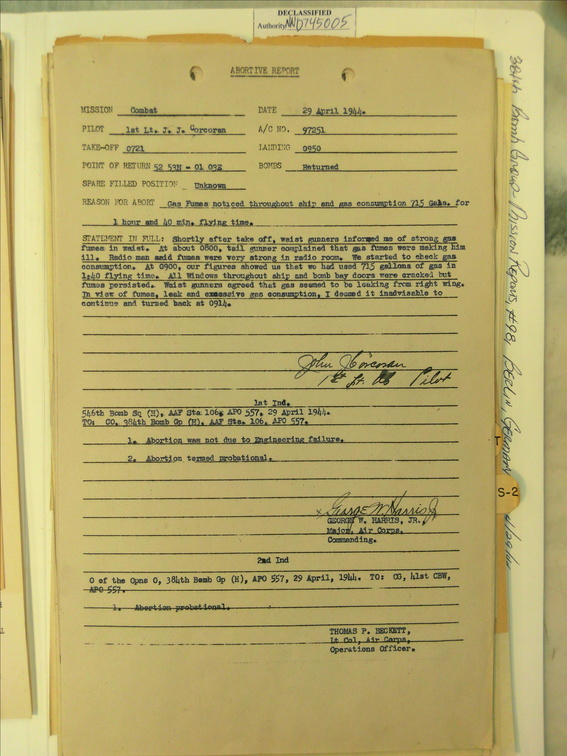 DECLASSIFIED
Authority NND745005
ABORTIVE REPORT
MISSION Combat DATE 29 April 1944.
PILOT 1st Lt. J. J. Corcoran A/C NO. 97251
TAKE-OFF 0721 LANDING 0950
POINT OF RETURN 52 53N - 01 03E BOMBS Returned
SPARE FILLED POSITION Unknown
REASON FOR ABORT Gas Fumes noticed throughout ship and gas consumption 715 Gals. for
1 hour and 40 min. flying time.
STATEMENT IN FULL: Shortly after take off, waist gunners informed me of strong gas
fumes in waist. At about 0800, tail gunner complained that gas fumes were making him
ill. Radio man said fumes were very strong in radio room. We started to check gas
consumption. At 0900, our figures showed us that we had used 715 gallons of gas in
1:40 flying time. All Windows throughout ship and bomb bay doors were cracked but
fumes persisted. Waist gunners agreed that gas seemed to be leaking from right wing.
In view of fumes, leak and excessive gas consumption, I deemed it inadvisable to
continue and turned back at 0914.
John J Corcoran
1st Lt. Pilot
1st Ind.
546th Bomb Sq (H), AAF Sta 106, APO 557, 29 April 1944.
TO: CO, 384th Bomb Gp (H), AAF Sta. 106, APO 557.
1. Abortion was not due to Engineering failure.
2. Abortion termed probational.
George W Harris Jr
GEORGE W. HARRIS, JR.,
Major, Air Corps,
Commanding.
2nd Ind
O of the Opns O, 384th Bomb Gp (H), APO 557, 29 April, 1944. TO: CG, 41st CBW,
APO 557.
1. Abortion probational.
THOMAS P. BECKETT,
Lt Col, Air Corps,
Operations Officer.
384th Bomb Group Mission Reports, #98, BERLIN, GERMANY
S-2